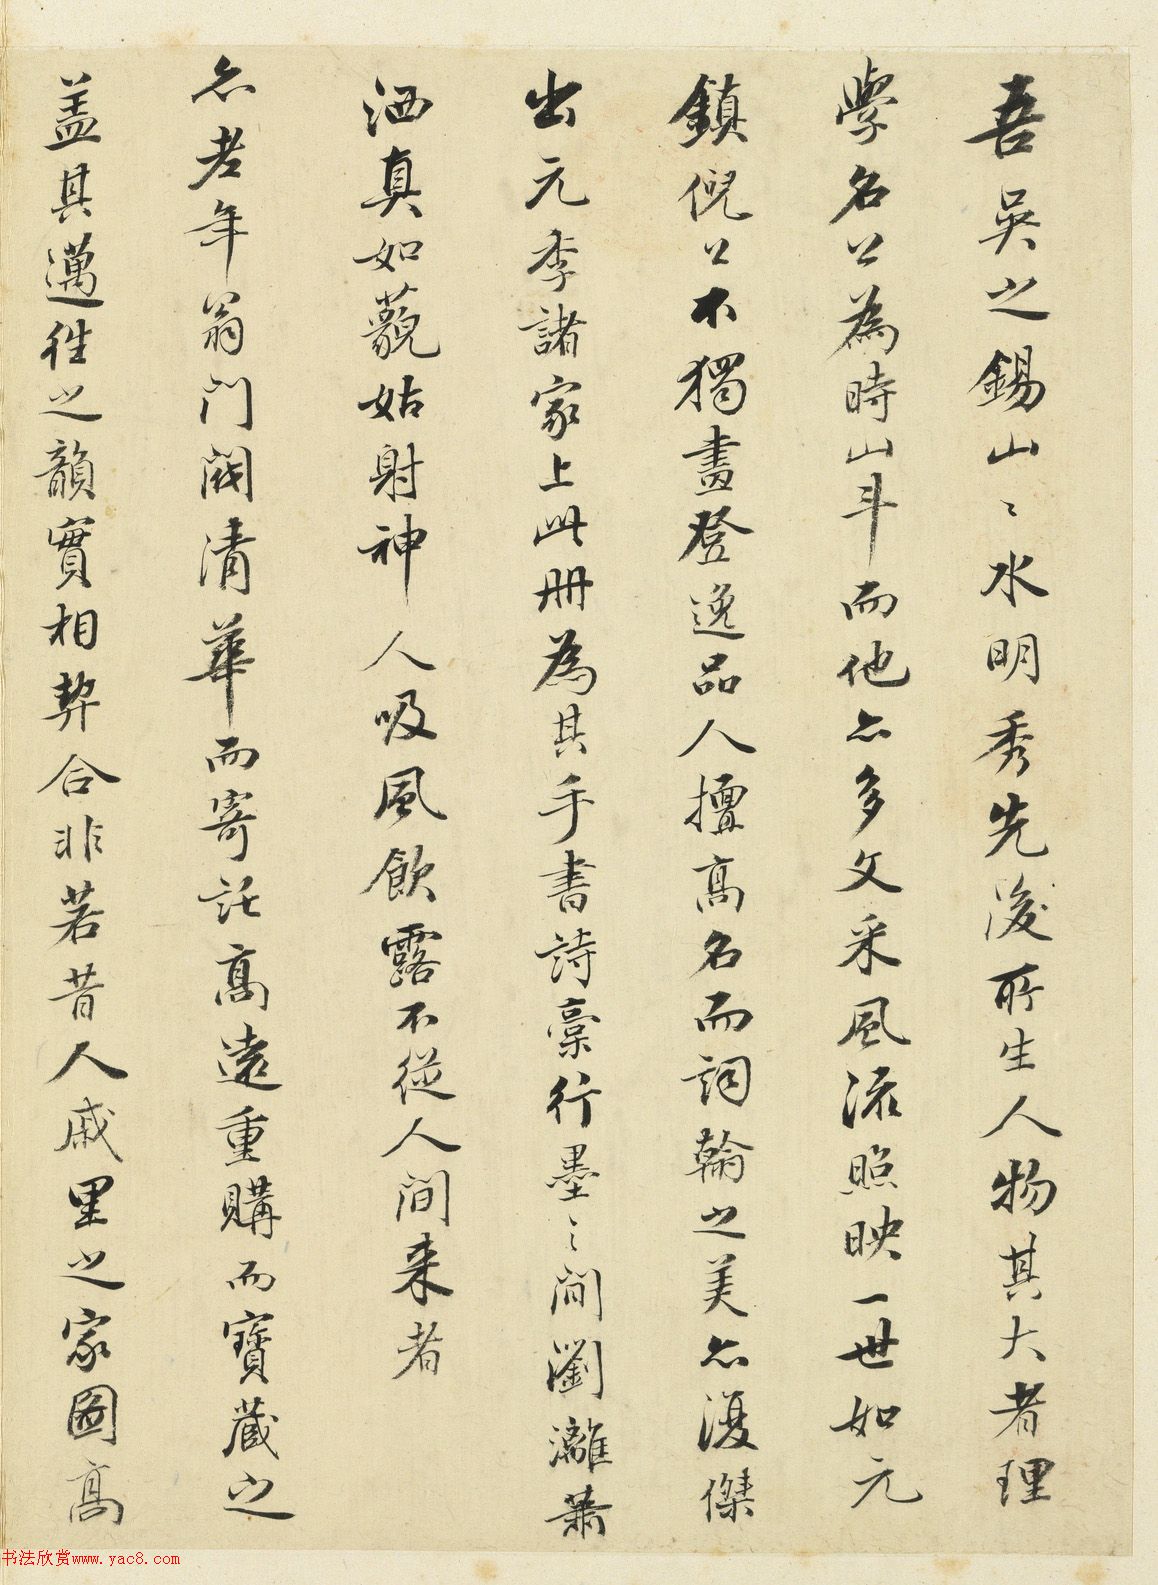 吾吳之錫山〻水明秀先後所生人物其大者理
學名公為時山斗而他亦多文采風流照映一世如元
鎮倪公不獨畫登逸品人擅高名而詞翰之美亦復傑
出元季諸家上此冊為其手書詩稾行墨〻間瀏灕蕭
洒真如藐姑射神人吸風飲露不從人間来者
亦老年翁門閥清華而寄託高遠重購而寶藏之
盖其邁往之韻實相契合非若昔人戚里之家圖高
书法欣赏www.yac8.com